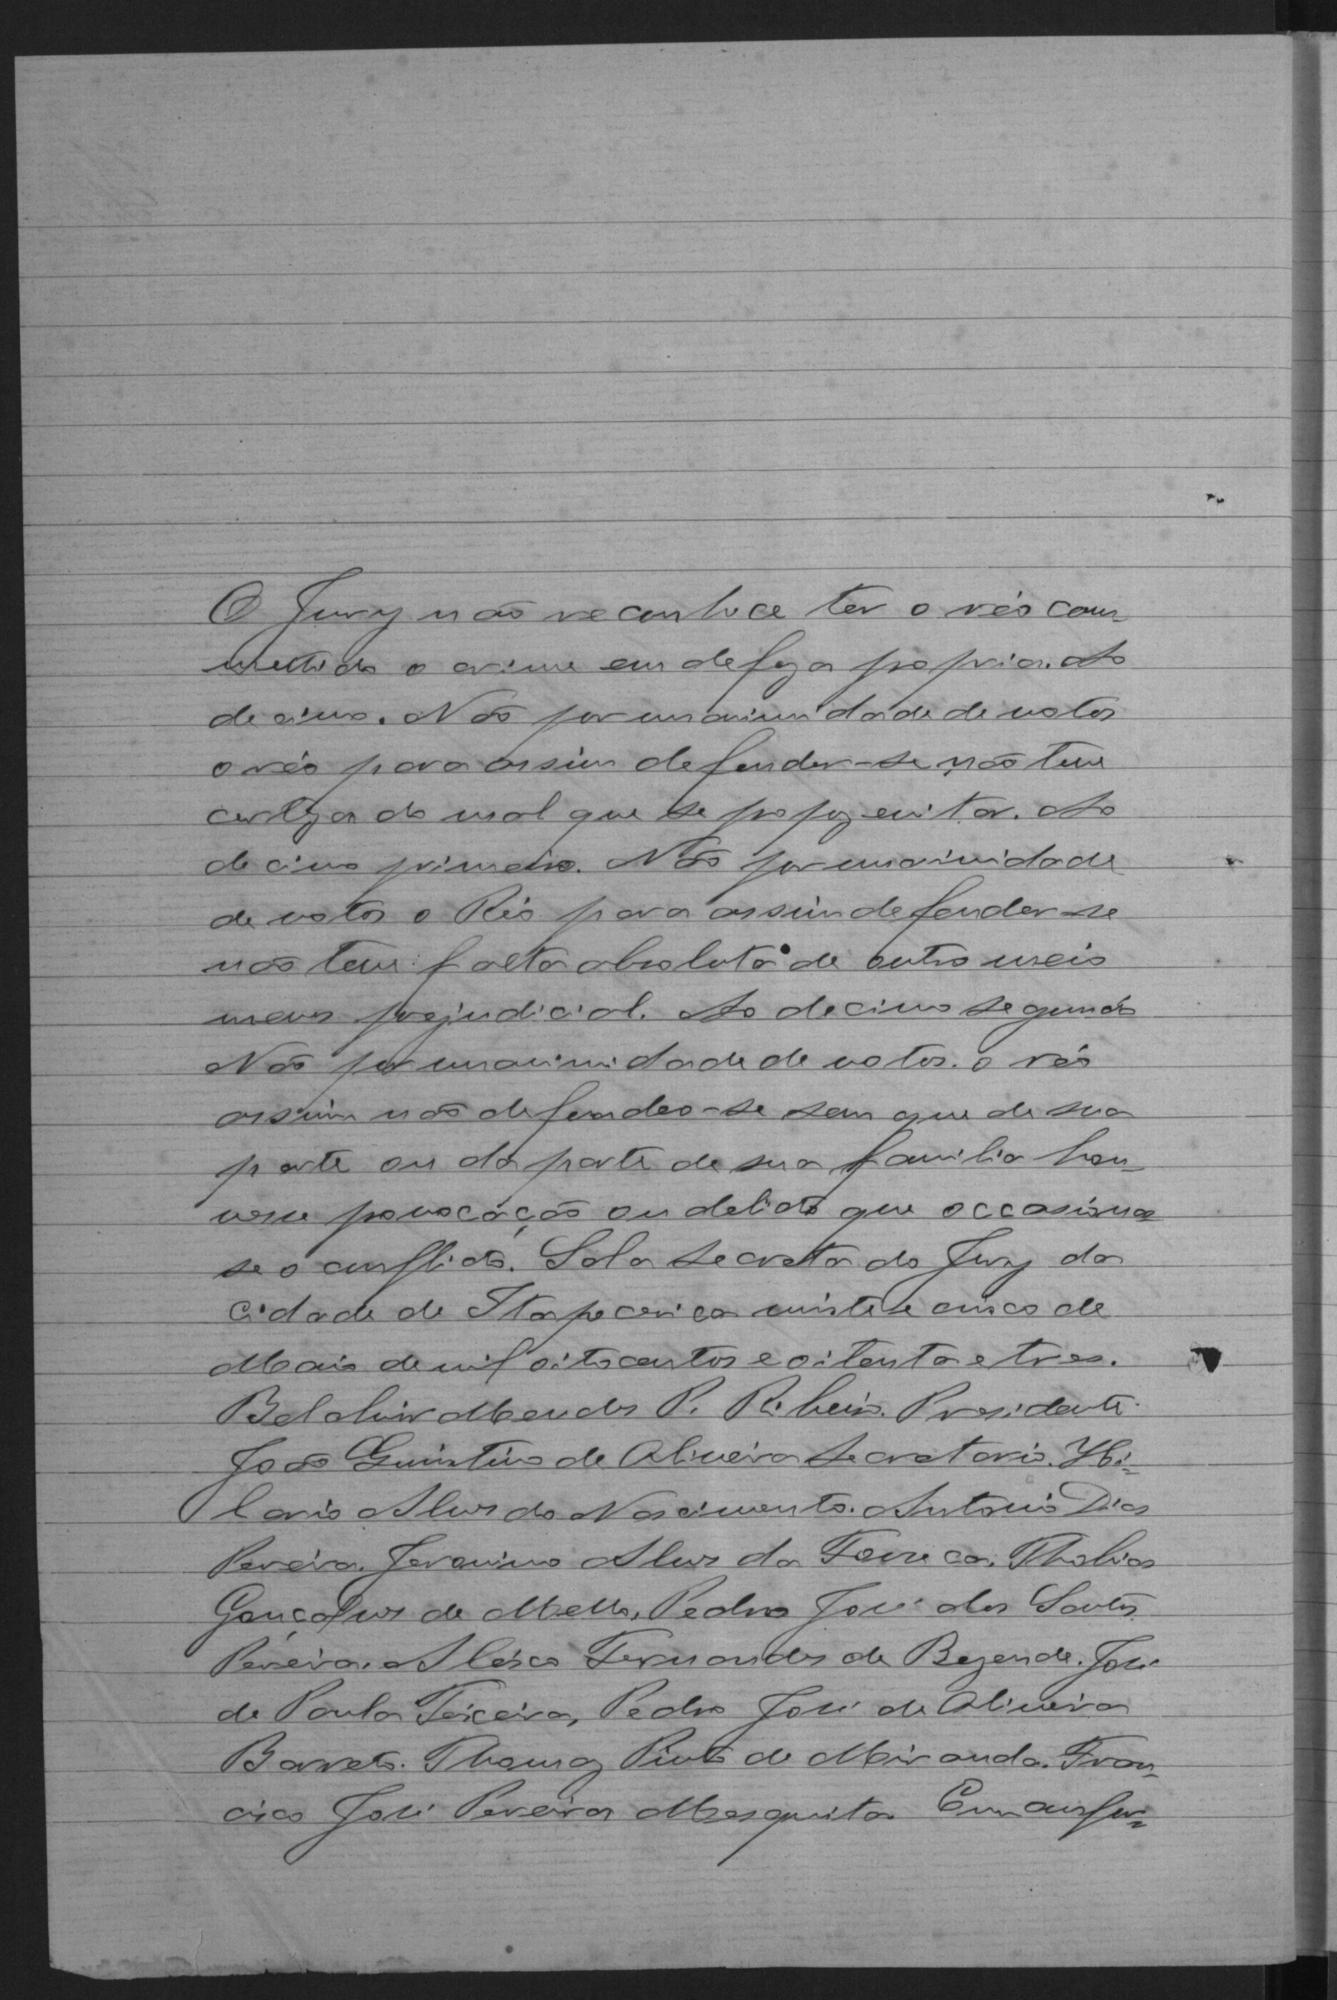 O Jury não reconhece ter o réo com-
mettido o crime em defeza propria. Ao
decimo. Não por unanimidade de votos
o réo para assim defender-se não teve
certeza do mal que se propoz evitar. Ao
decimo primeiro. Não por unanimidade
de votos o Réo para assim defender-se
não teve falta absoluta de outro meio
menos prejudicial. Ao decimo segundo
Não por unanimidade de votos. o réo
assim não defendeo-se sem que de sua
parte ou da parte de sua familia hou-
vesse provocação ou delicto que occasiona
se o conflicto. Sala secreta do Jury da
Cidade de Itapecerica vinte e cinco de
Maio de mil oitocentos e oitenta e tres.
Belchior Mendes P. Ribeiro. Presidente.
João Quintino de Oliveira Secretario. Hi-
lario Alves do Nascimento. Antonio Dias
Pereira. Jeronimo Alves da Fonseca. Thobias
Gonçalves de Mello, Pedro José dos Santos
Pereira. Aleixo Fernandes de Rezende. José
de Paula Teixeira, Pedro José de Oliveira
Barreto. Thomaz Pinto de Miranda. Fran-
cisco José Pereira Mesquita. Em confor-